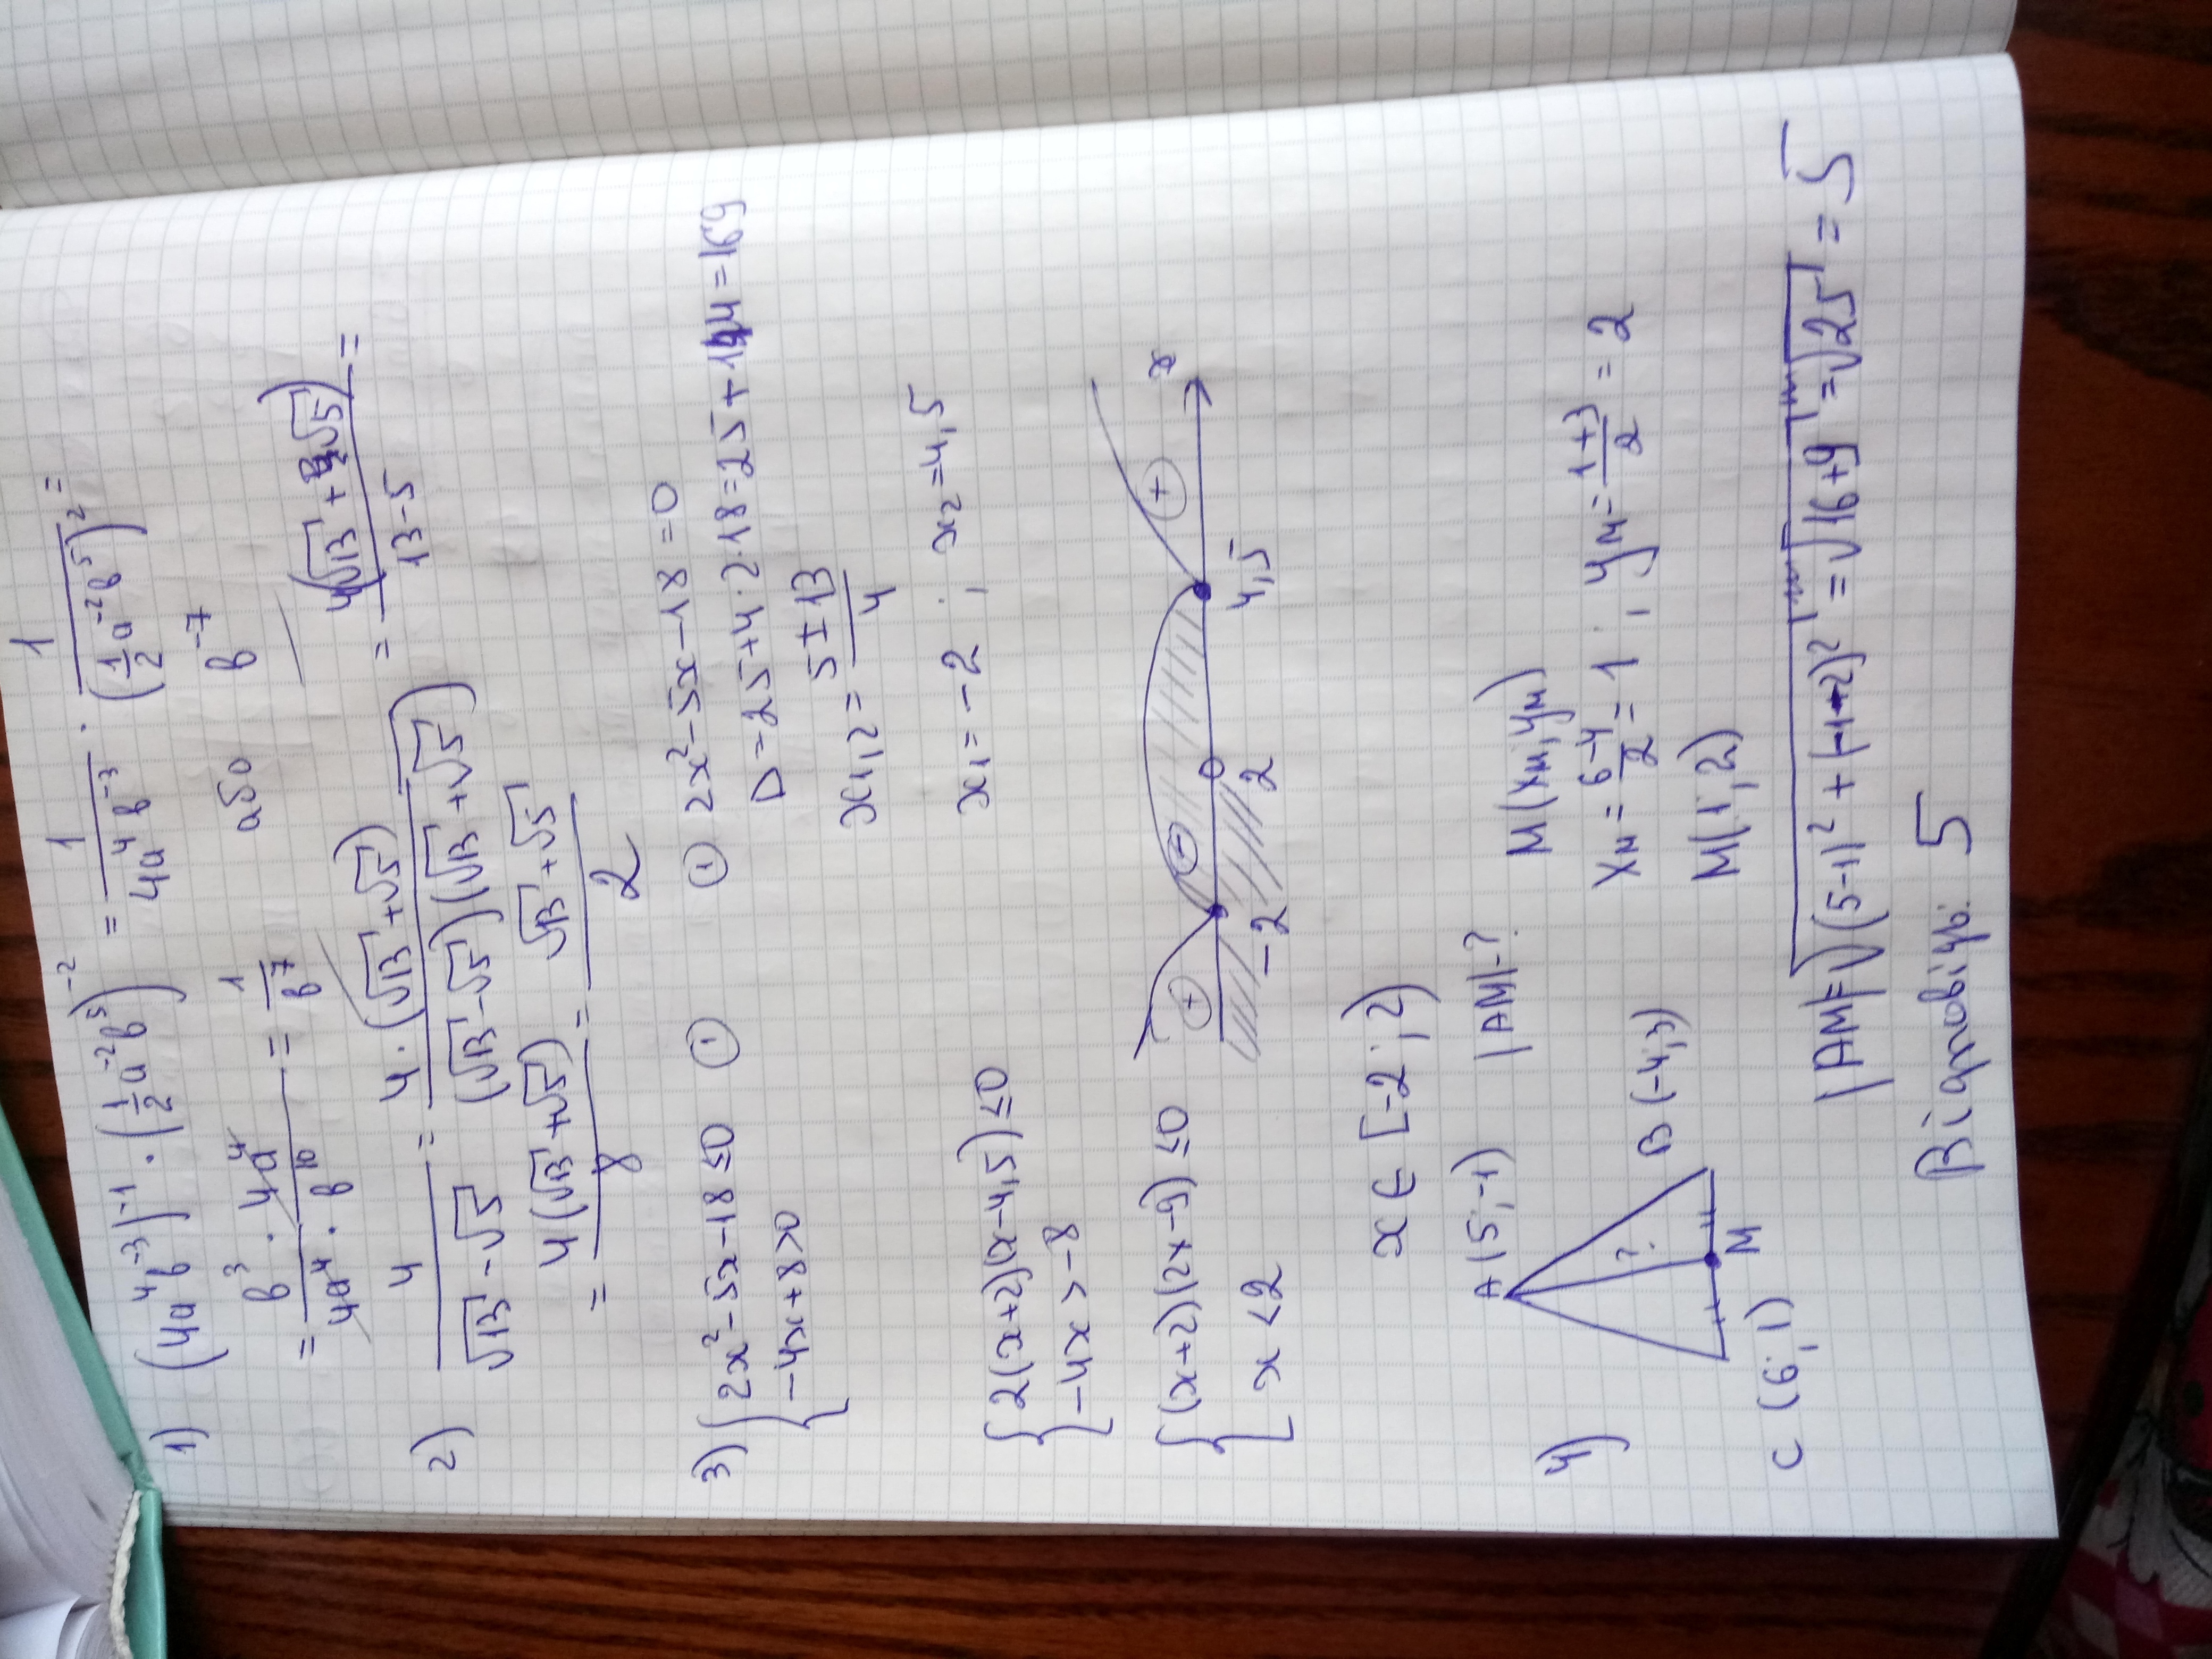 1) (4a⁴в⁻³)⁻¹ · (1/2 a⁻²в⁵)⁻² = 1/(4a⁴в⁻³) · 1/(1/2 a⁻²в⁵)² =
= в³ · 4a⁴/(4a⁴ · в¹⁰) = 1/в⁷ або в⁻⁷
2) 4/(√13 - √5) = 4 · (√13 + √5)/((√13 - √5)(√13 + √5)) = 4(√13 + √5)/(13-5) =
= 4(√13 + √5)/8 = (√13 + √5)/2
3) { 2x² - 5x - 18 ≤ 0 ① ① 2x² - 5x - 18 = 0
-4x + 8 > 0 D = 25 + 4 · 2 · 18 = 25 + 144 = 169
x1,2 = (5 ± 13)/4
x1 = -2 ; x2 = 4,5
{ 2(x+2)(x-4,5) ≤ 0
-4x > -8
{ (x+2)(2x-9) ≤ 0
x < 2
+ - + x
-2 2 4,5
x ∈ [-2; 2)
4) A (5; -1) |AM| - ?
M(xм; yм)
A ? M B (-4; 3) C (6; 1)
xм = (6-4)/2 = 1 ; yм = (1+3)/2 = 2
M(1; 2)
|AM| = √((5-1)² + (-1-2)²) = √(16+9) = √25 = 5
Відповідь: 5